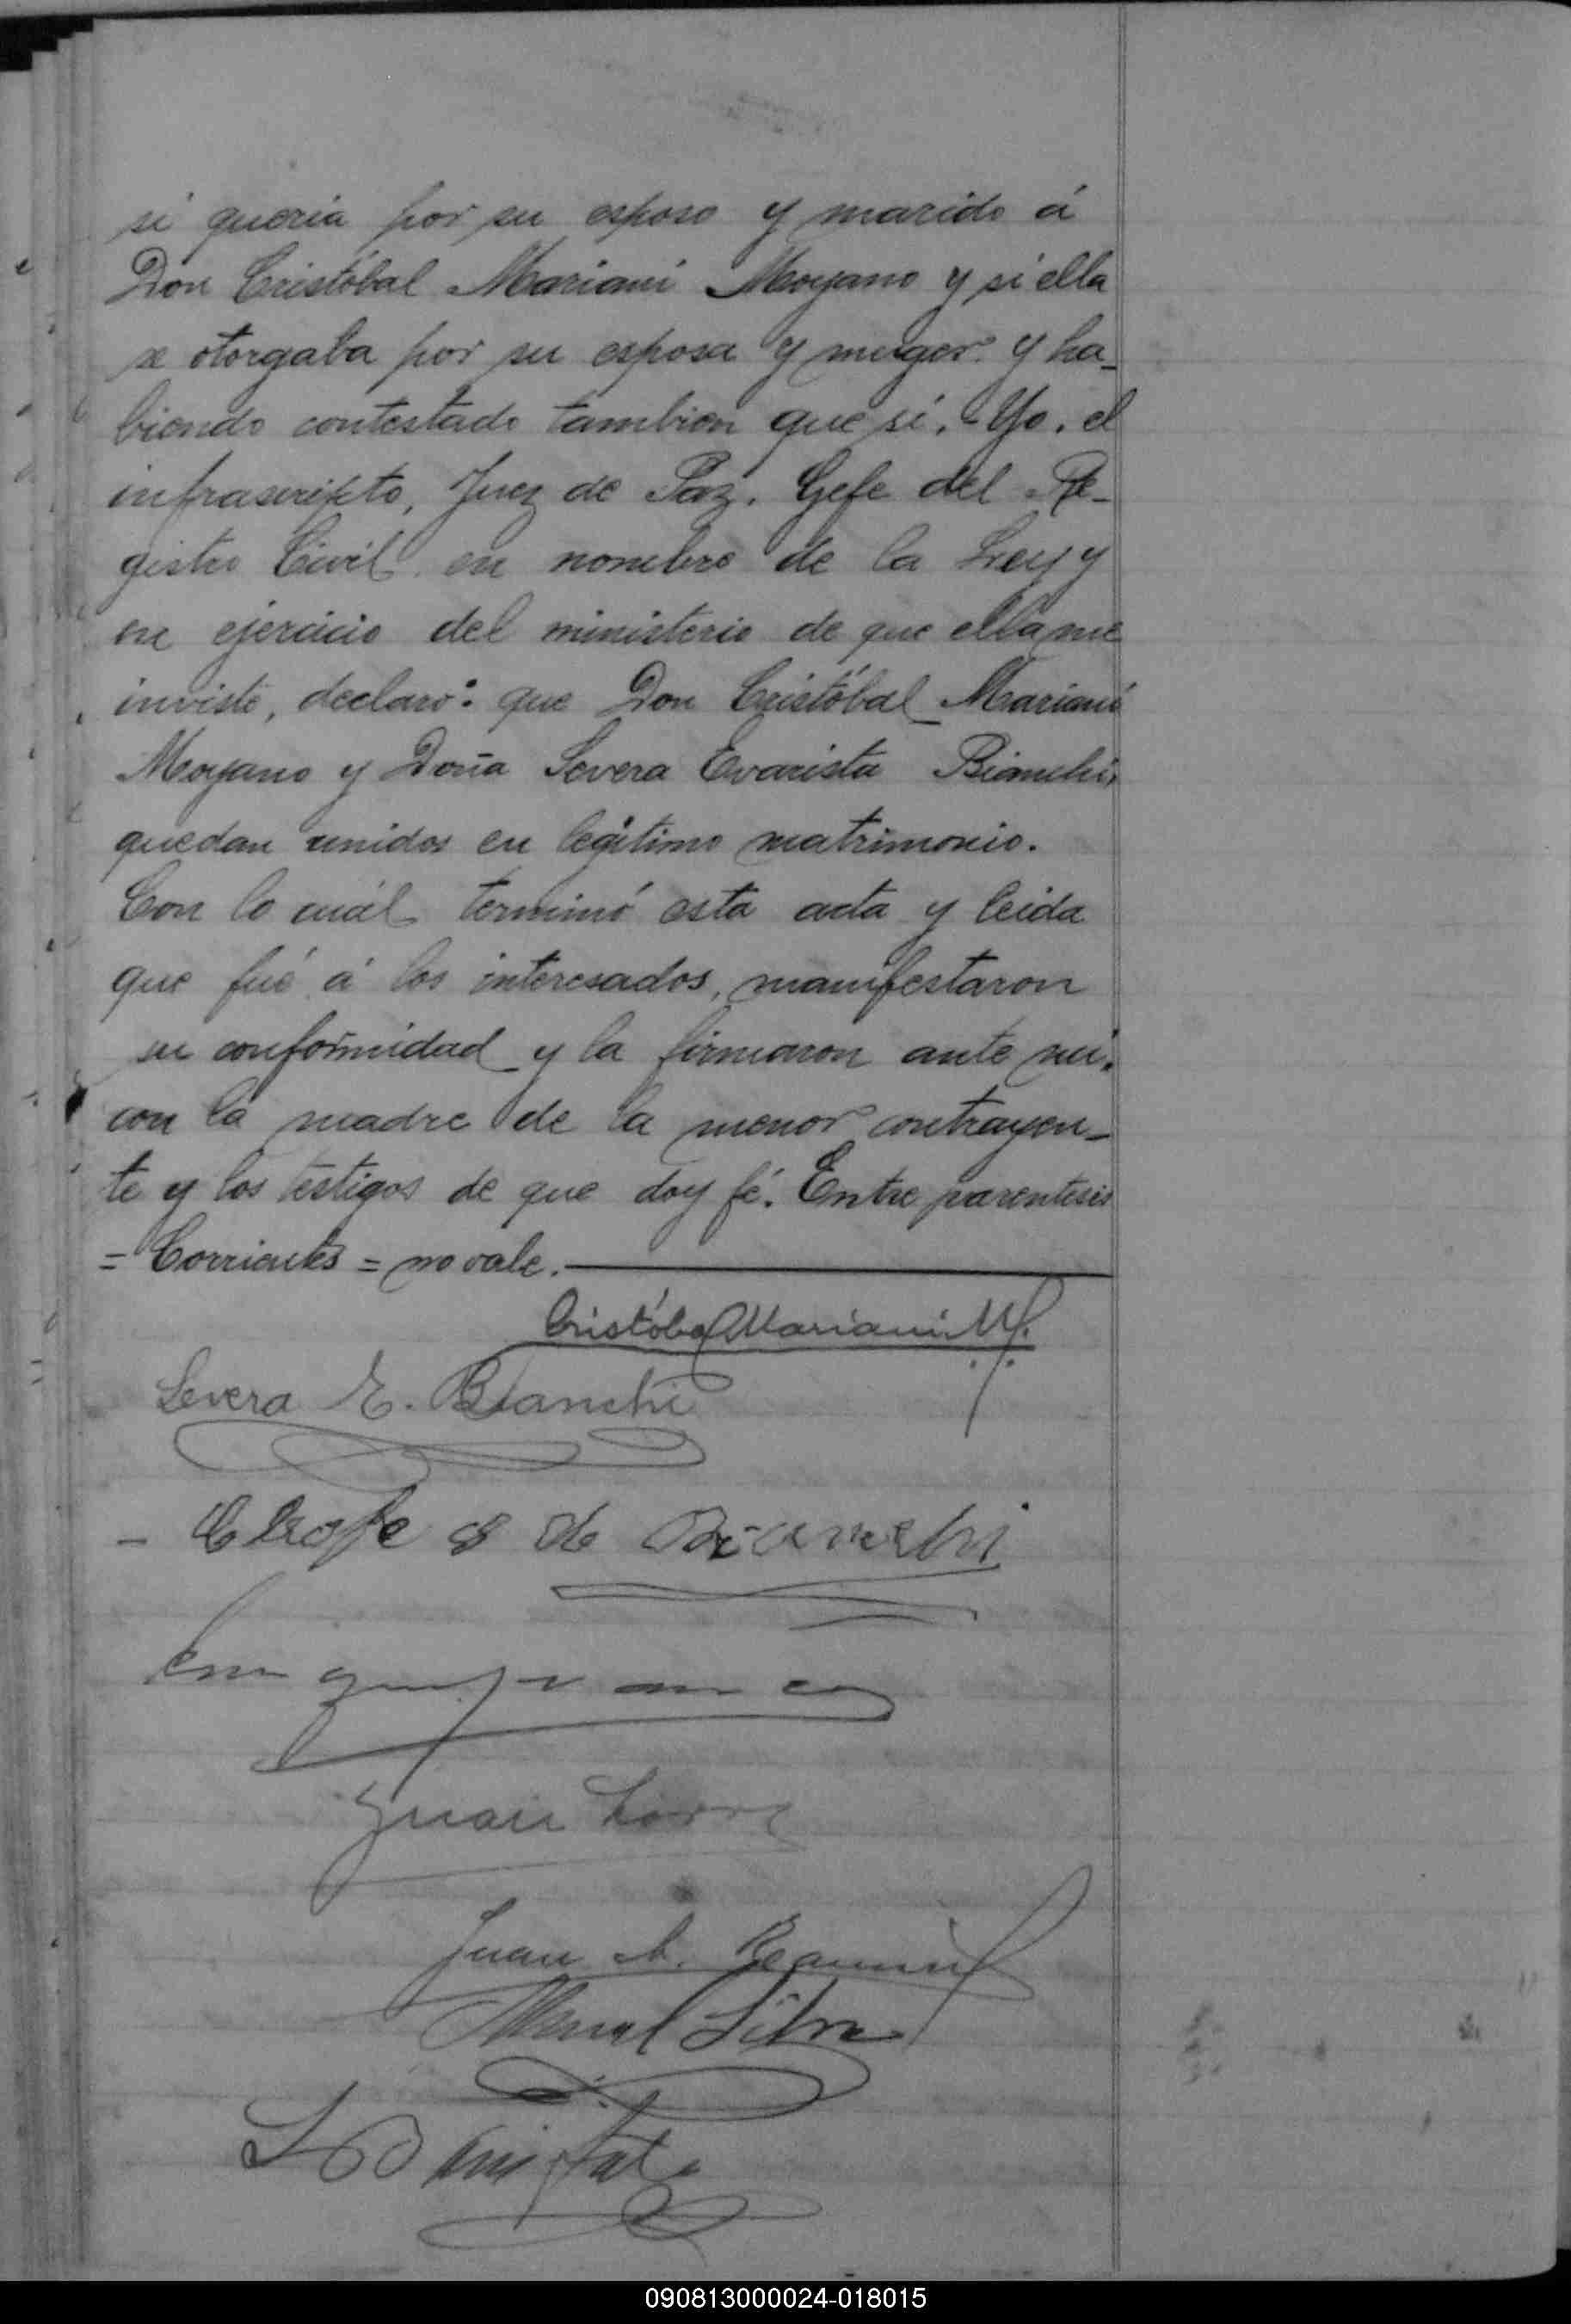 si queria por su esposo y marido á
Don Cristóbal Mariani Moyano y si ella
se otorgaba por su esposa y muger y ha-
biendo contestado tambien que sí, Yo, el
infrascripto, Juez de Paz, Gefe del Re-
gistro Civil en nombre de la Ley y
en ejercicio del ministerio de que ella me
inviste, declaro: que Don Cristóbal Mariani
Moyano y Doña Severa Evarista Bianchi,
quedan unidos en legítimo matrimonio.
Con lo cuál terminó esta acta y leida
que fué á los interesados, manifestaron
su conformidad y la firmaron ante mi,
con la madre de la menor contrayen-
te y los testigos de que doy fé. Entre parentesis
= Corrientes = no vale.
Cristóbal Mariani M.
Severa E. Bianchi
de Bianchi
Juan
Juan
Manuel Silva
090813000024-018015